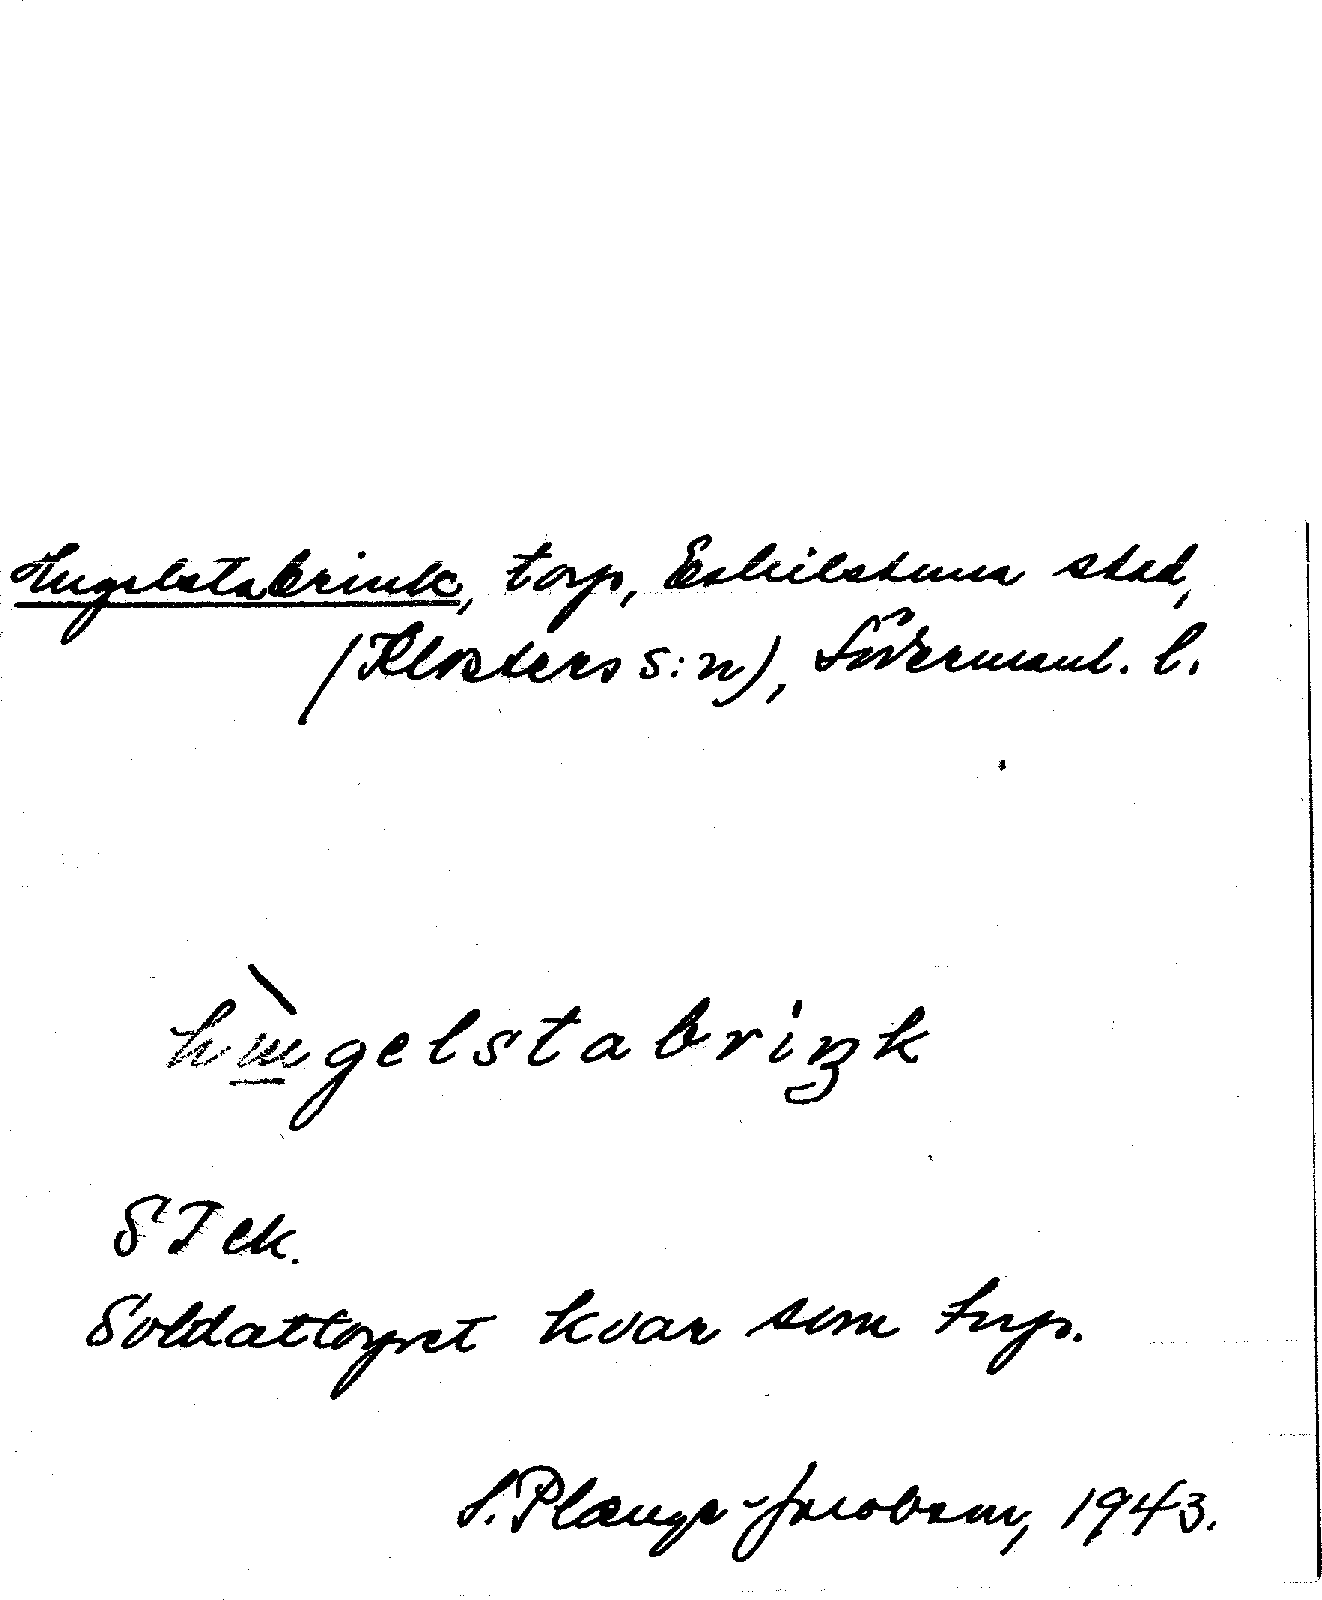 Hugelstabrink, torp, Eskilstuna stad,
(Klosters s:n), Södermanl. l.
hùgelstabriŋk
STek.
Soldattorpet kvar som torp.
S. Plænge-Jacobson, 1943.